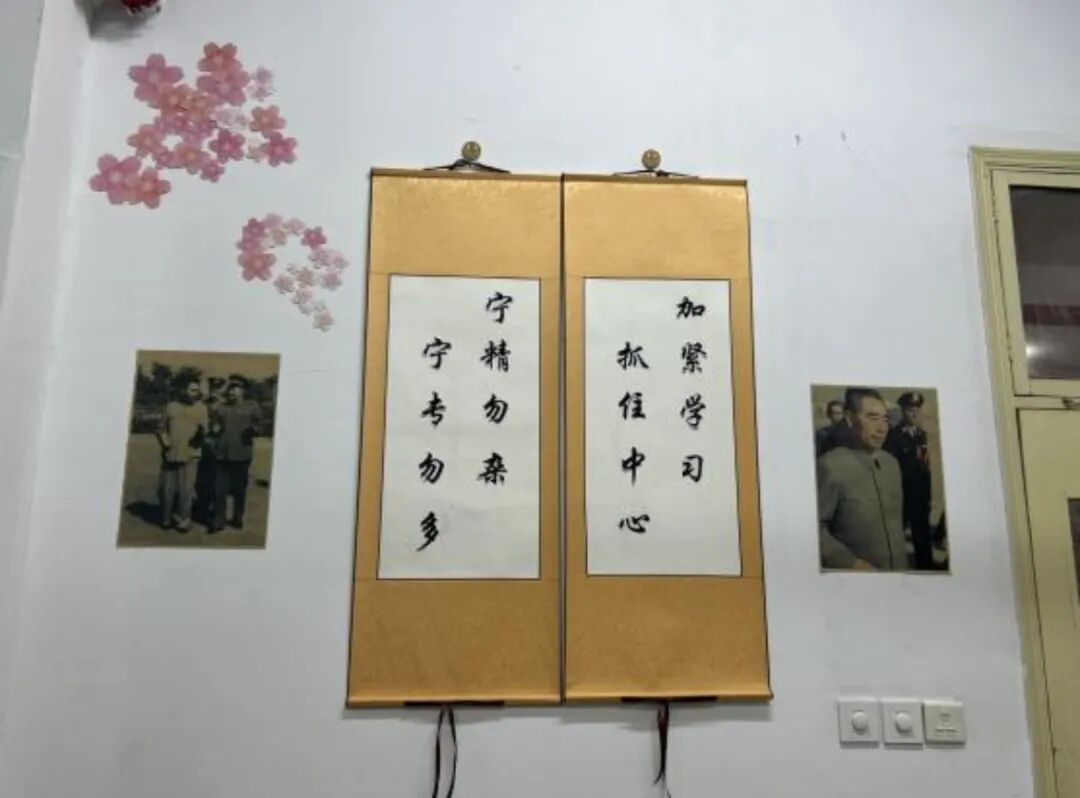 加紧学习
抓住中心
宁精勿杂
宁专勿多